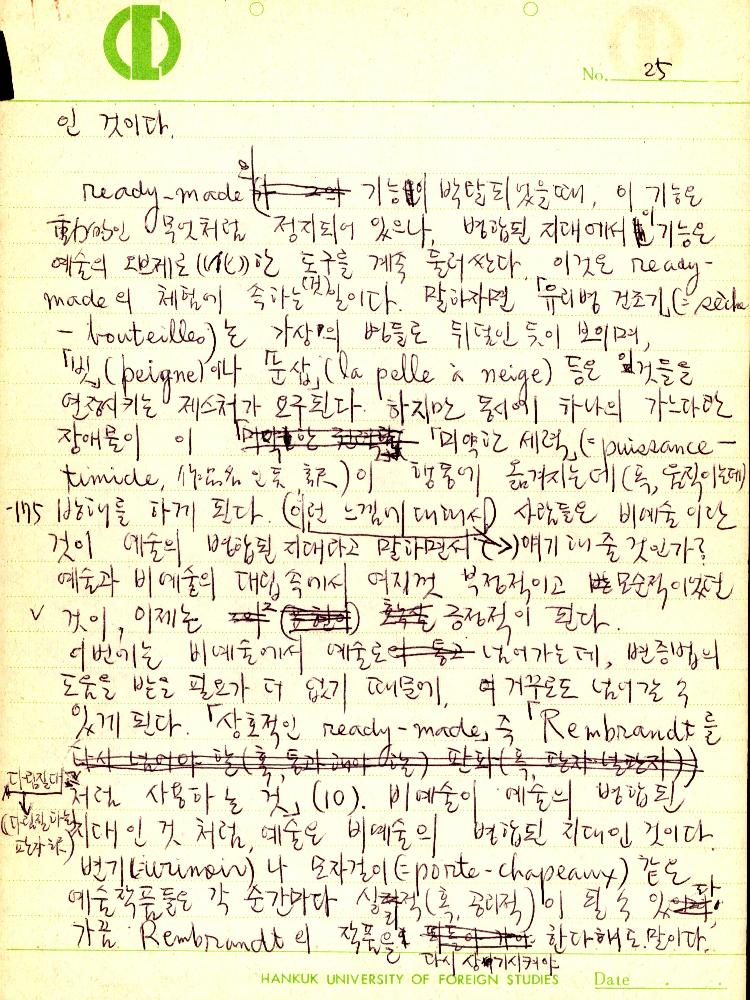 No. 25
인 것이다.
ready-made의 기능이 박탈되었을때, 이 기능은
動的인 무엇처럼 정지되어 있으나, 병합된 지대에서 이 기능은
예술의 오브제로 한 도구를 계속 둘러싼다. 이것은 ready-
made의 체험에 속하는 (것) 일이다. 말하자면 「유리병 건조기」(=sèche
-bouteilles)는 가상의 병들로 뒤덮인 듯이 보이며,
「빗」(peigne)이나 「눈삽」(la pelle à neige) 등은 것들을
연장시키는 제스처가 요구된다. 하지만 동시에 하나의 가느다란
장애물이 이 「미약한 세력」(=puissance-
timide, 作品名 인듯 訳)이 행동에 옮겨지는데(혹, 움직이는데)
-175 방해를 하게 된다. (이런 느낌에 대해서) 사람들은 비예술이란
것이 예술의 병합된 지대라고 말하면서 (→)얘기해 줄 것인가?
예술과 비예술의 대립 속에서 여지껏 부정적이고 모순적이었던
∨ 것이, 이제는 긍정적이 된다.
이번에는 비예술에서 예술로 넘어가는데, 변증법의
도움을 받을 필요가 더 없기 때문에, 거꾸로도 넘어갈 수
있게 된다. 「상호적인 ready-made」즉 「Rembrandt를
다시 넘어야 할(혹, 통과해야 하는) 판화(혹, 판자·널판지))
다림질대
처럼 사용하는 것」(10). 비예술이 예술의 병합된
(다림질하는 판자 訳)
지대인 것 처럼, 예술은 비예술의 병합된 지대인 것이다.
변기(=urinoir)나 모자걸이(=porte-chapeaux) 같은
예술작품들은 각 순간마다 실리적(혹, 공리적)이 될 수 있다,
가끔 Rembrandt의 작품을 한다해도 말이다.
다시 상기시켜야
HANKUK UNIVERSITY OF FOREIGN STUDIES Date . .